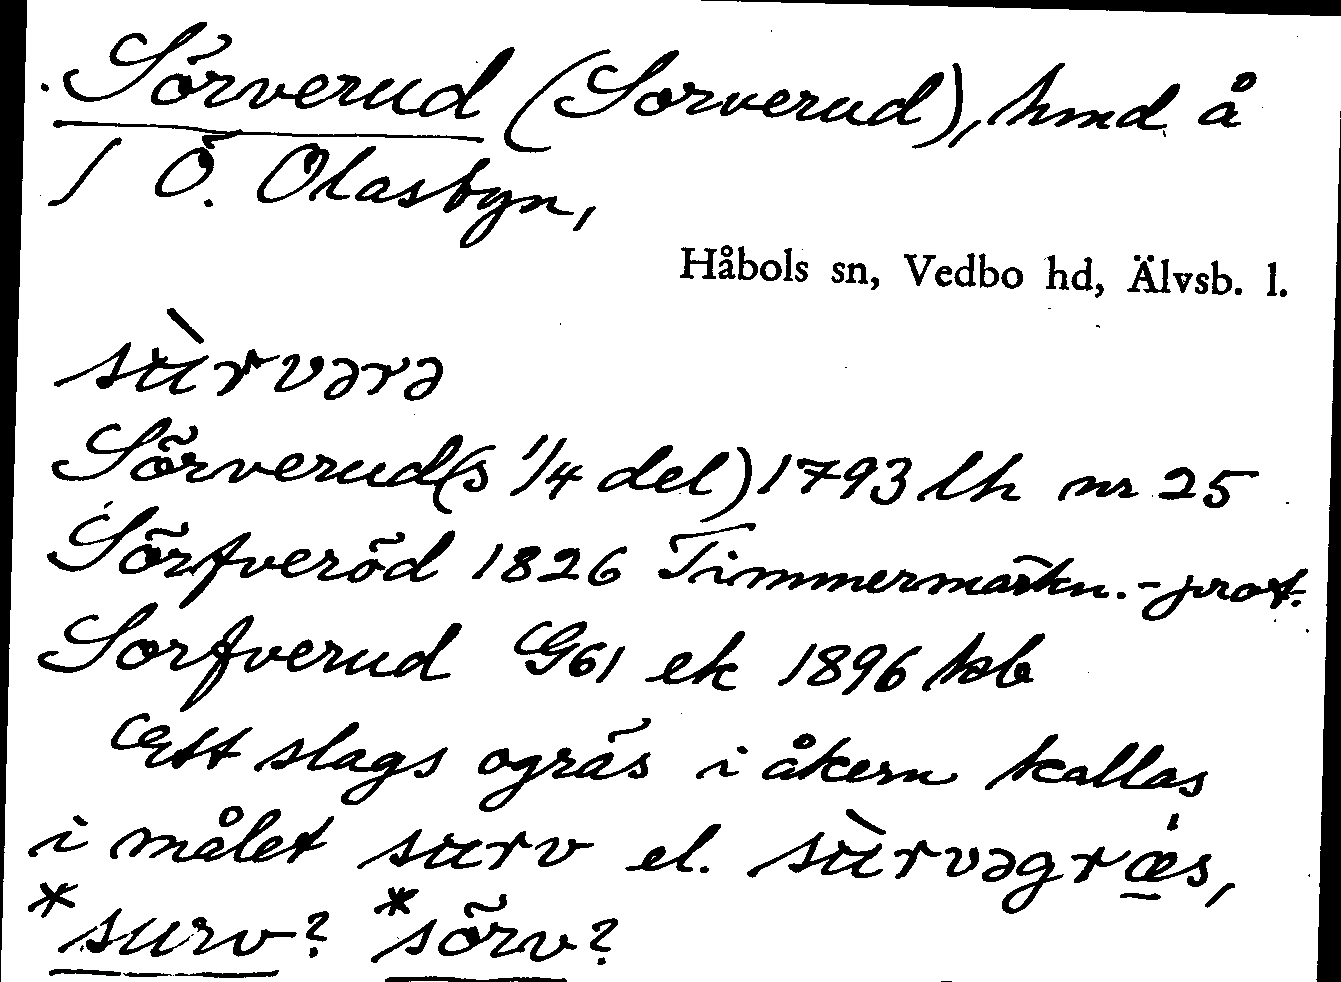 Sörverud (Sorverud), hmd å
1 Ö. Olasbyn,
Håbols sn, Vedbo hd, Älvsb. l.
sùrvərə
Sörverud(s 1/4 del) 1793 lh nr 25
Sörfveröd 1826 Timmermärkn.-prot.
Sorfverud G61 ek 1896 kb
Ett slags ogräs i åkern kallas
i målet surv el. sùrvəgræ̠s,
*surv? *sörv?